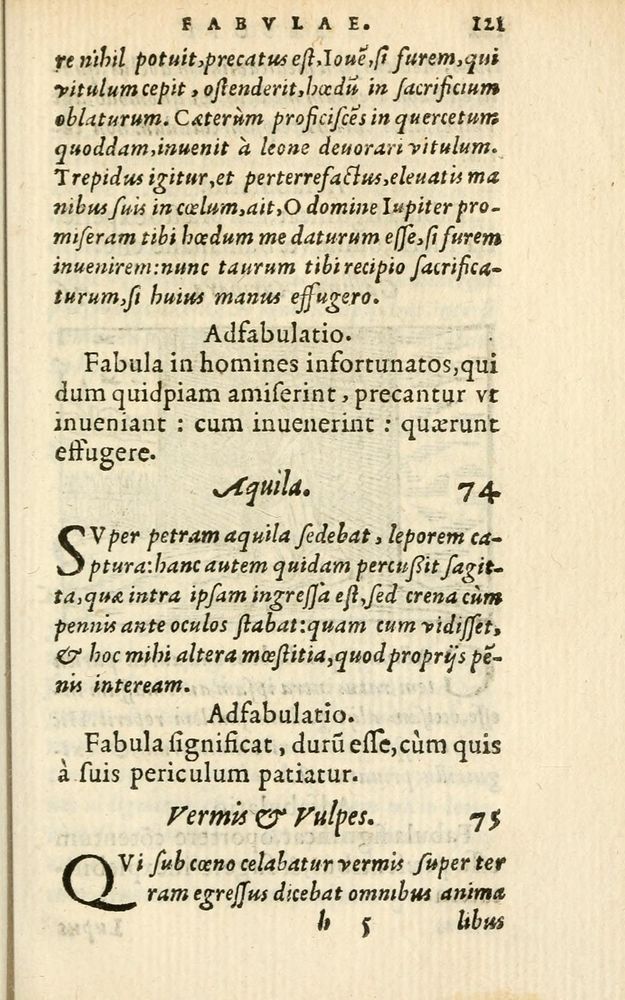 FABVLAE. 121
re nihil potuit, precatus eſt, Iouē, ſi furem, qui
vitulum cepit, oſtenderit, hœdū in ſacrificium
oblaturum. Cæterùm proficiſcēs in quercetum
quoddam, inuenit à leone deuorari vitulum.
Trepidus igitur, et perterrefactus, eleuatis ma
nibus ſuis in cœlum, ait, O domine Iupiter pro-
miſeram tibi hœdum me daturum eſſe, ſi furem
inuenirem: nunc taurum tibi recipio ſacrifica-
turum, ſi huius manus effugero.
Adfabulatio.
Fabula in homines infortunatos, qui
dum quidpiam amiſerint, precantur vt
inueniant : cum inuenerint : quærunt
effugere.
Aquila. 74
SVper petram aquila ſedebat, leporem ca-
ptura: hanc autem quidam percußit ſagit-
ta, quæ intra ipſam ingreſſa eſt, ſed crena cùm
pennis ante oculos ſtabat: quam cum vidiſſet,
& hoc mihi altera mœſtitia, quod proprijs pē-
nis inteream.
Adfabulatio.
Fabula ſignificat, durū eſſe, cùm quis
à ſuis periculum patiatur.
Vermis & Vulpes. 75
QVi ſub cœno celabatur vermis ſuper ter
ram egreſſus dicebat omnibus anima
h 5 libus